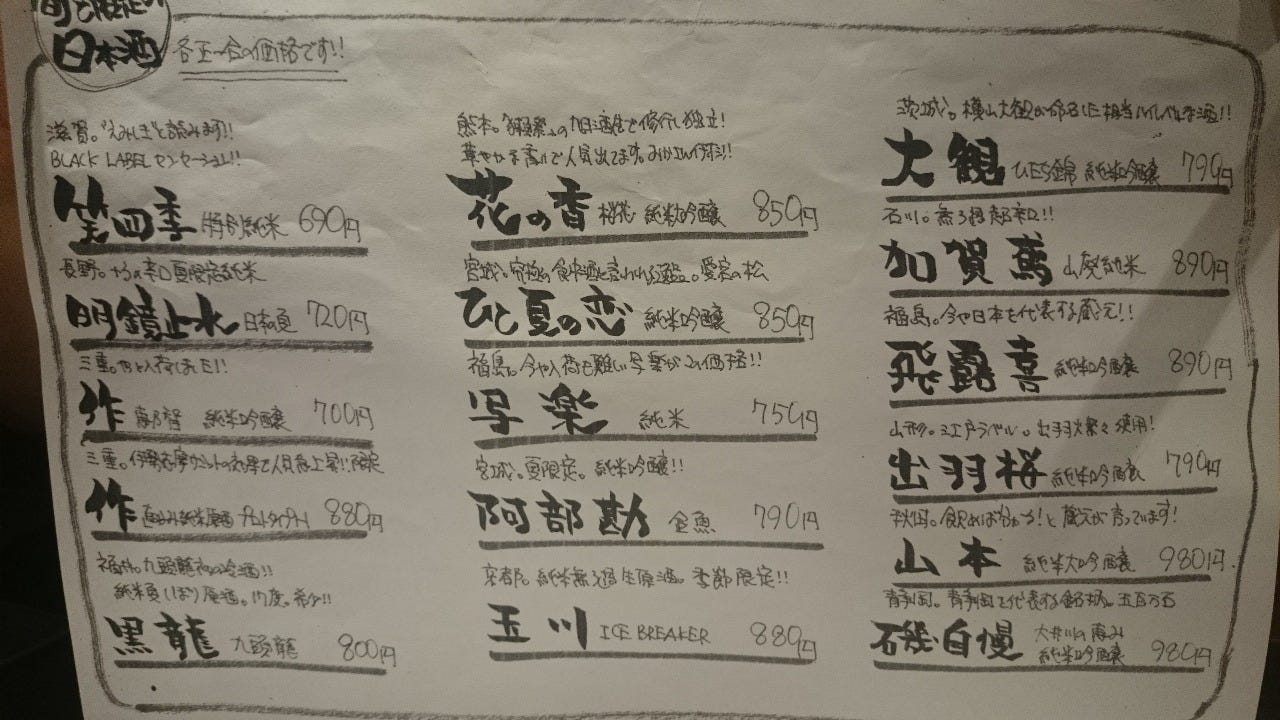 旬と限定の
日本酒
各正一合の価格です!!
滋賀。"えみしき"と読みます!!
BLACK LABEL センセーション!!
笑四季 特別純米 690円
長野。 辛口夏限定純米
明鏡止水 日本の夏 720円
三重。やっと入荷しました!!
作 恵乃智 純米吟醸 700円
三重。伊勢志摩サミットの乾杯で人気急上昇!!限定
作 直汲み純米原酒 プロトタイプ 880円
福井。九頭龍 の冷酒!!
純米 しぼり原酒。17度。希少!!
黒龍 九頭龍 800円
熊本。"獺祭"の旭酒造で修行し独立!
華やかな香りで人気出てます。
花の香 桜花 純米大吟醸 850円
宮城。究極の食中酒と言われる 。愛宕の松
ひと夏の恋 純米吟醸 850円
福島。今や入荷も難しい写楽がこの価格!!
写楽 純米 750円
宮城。夏限定。純米吟醸!!
阿部勘 金魚 790円
京都。純米無ろ過生原酒。季節限定!!
玉川 ICE BREAKER 880円
茨城。横山大観が命名した相当ハイレベルな酒!!
大観 ひたち錦 純米吟醸 790円
石川。無ろ過超辛口!!
加賀鳶 山廃純米 890円
福島。今や日本を代表する蔵元!!
飛露喜 純米吟醸 890円
山形。三江戸ラベル。出羽燦々使用!
出羽桜 純米吟醸 790円
秋田。飲めば分かる!と蔵元が言っています!
山本 純米大吟醸 980円
静岡。静岡を代表する銘柄。五百万石
磯自慢 大井川の恵み 純米吟醸 980円